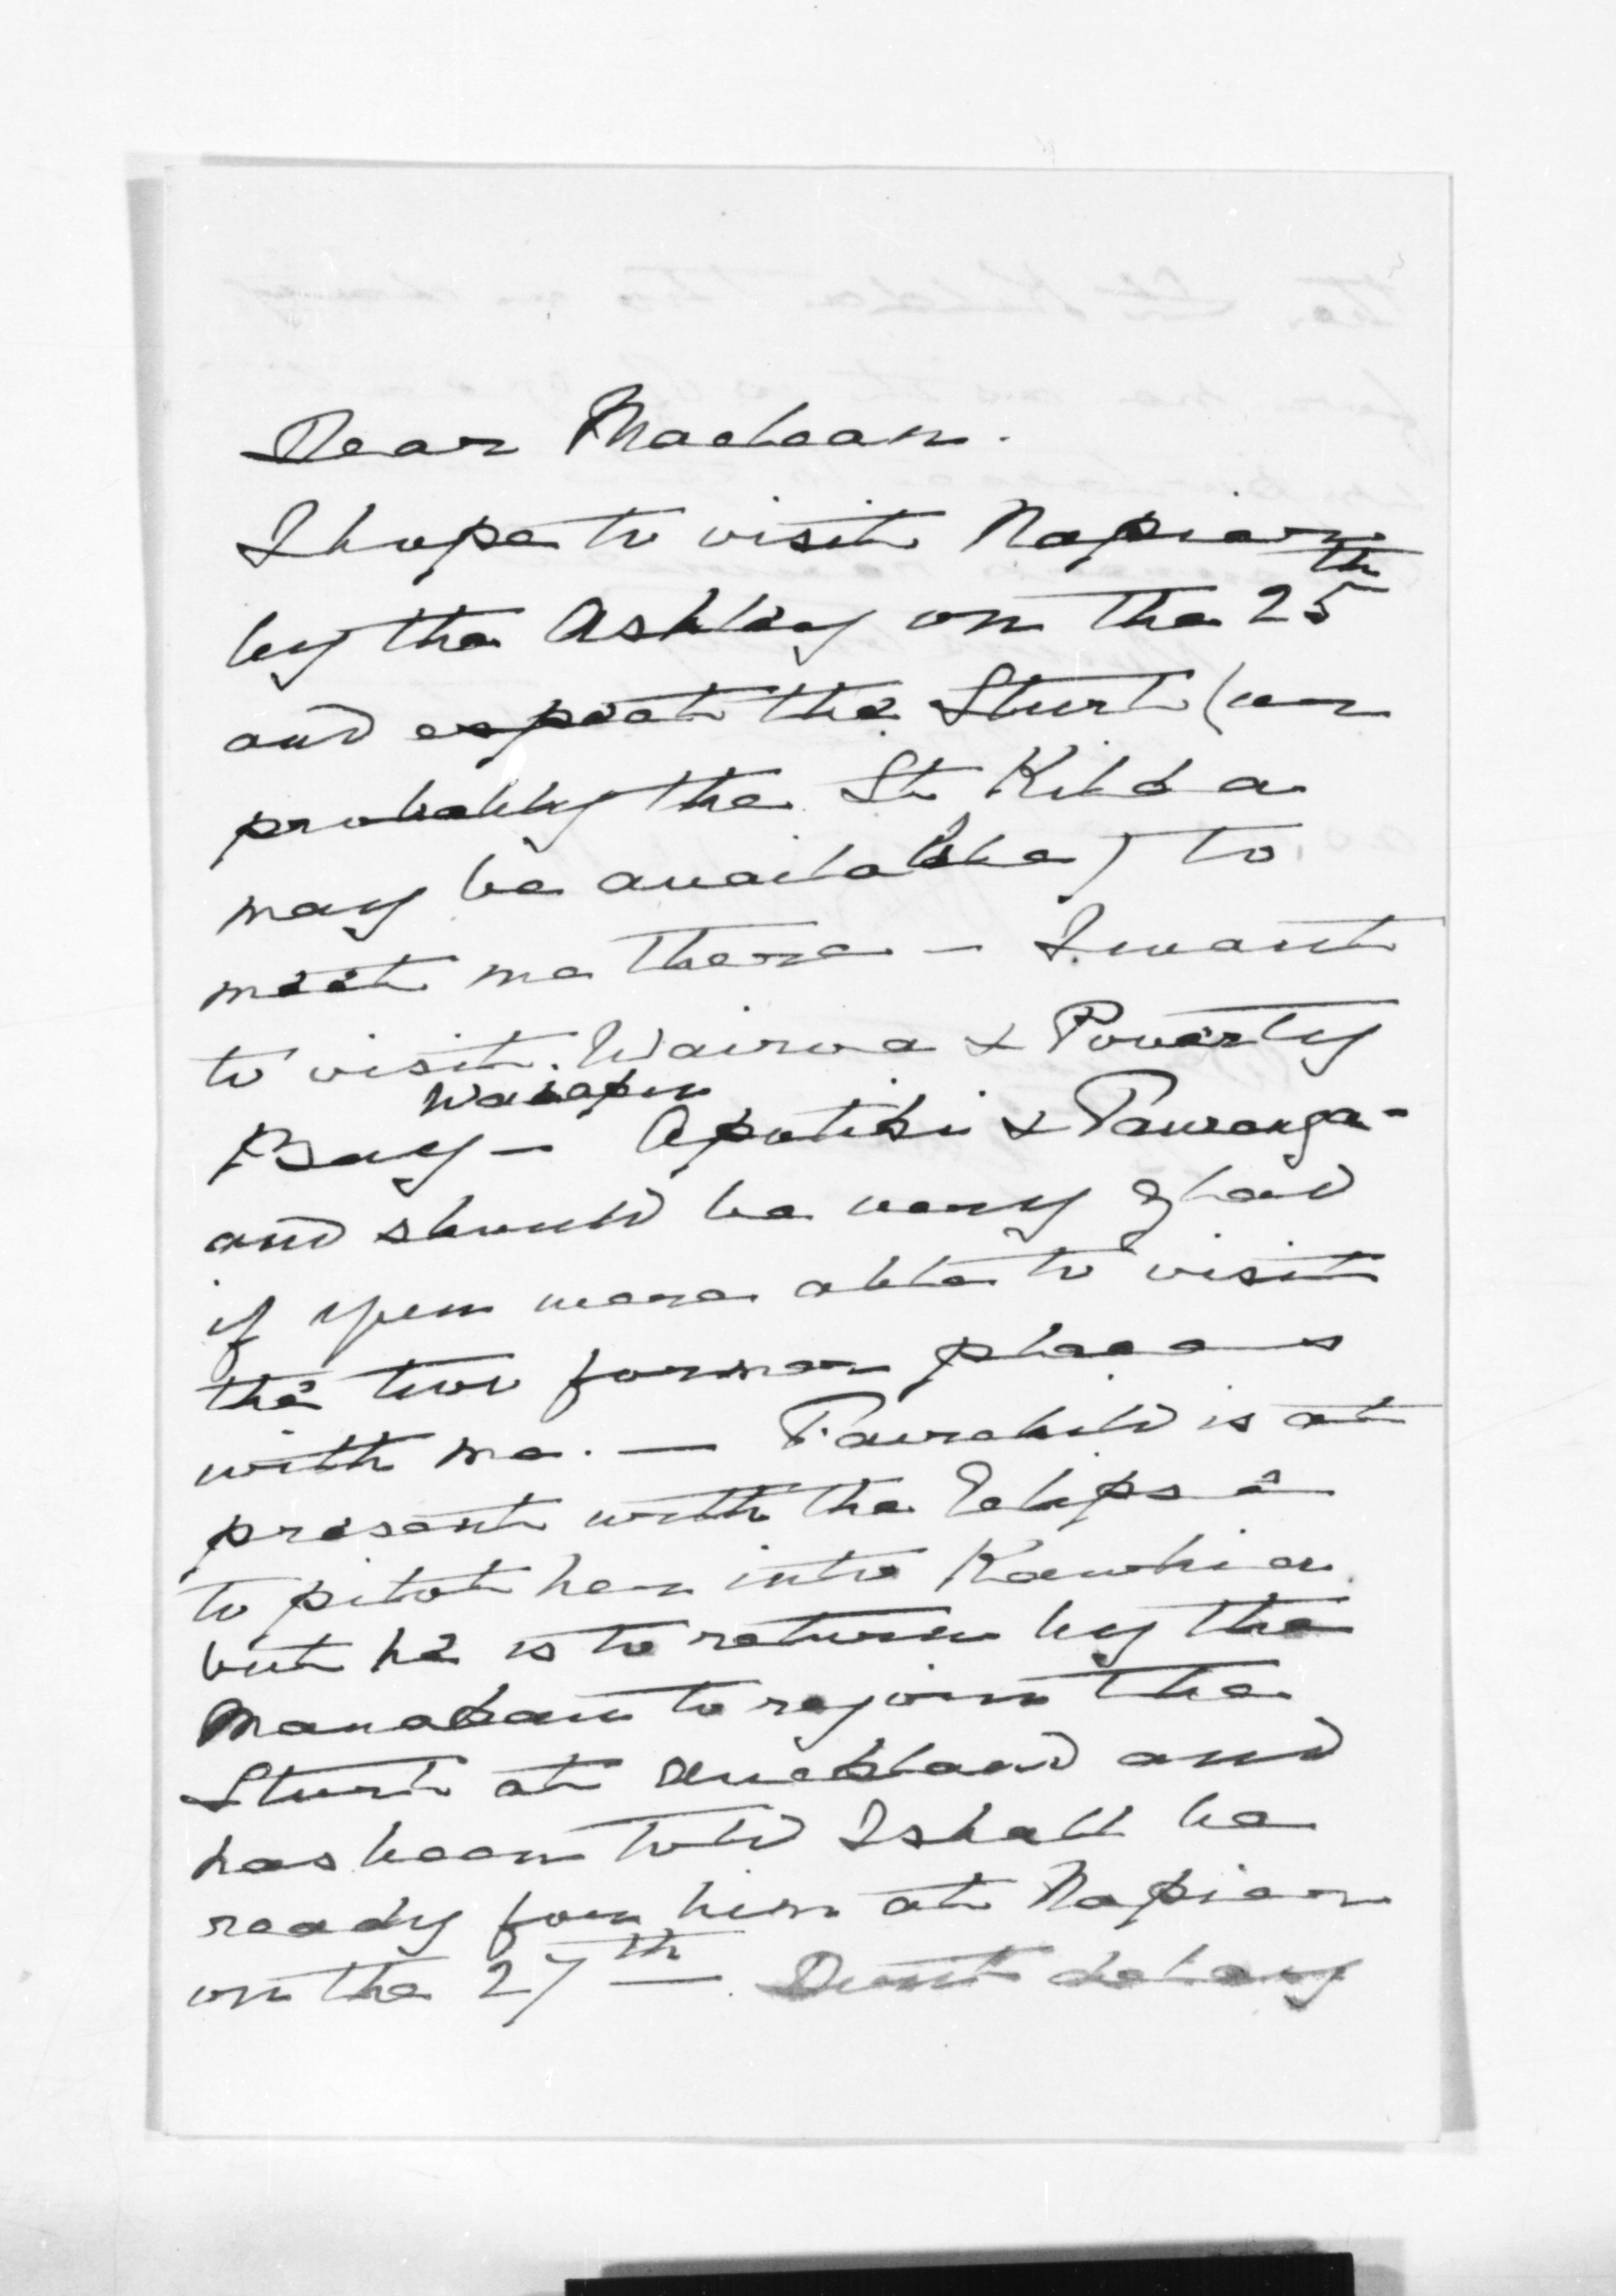 Dear Maclean.
I hope to visit Napier
by the Ashley on the 25th
and expect the Sturt (or
probably the St Kilda
may be available) to
meet me there - I want
to visit Wairoa & Poverty
Bay - Waiapu Opotiki & Tauranga -
and should be very glad
if you were able to visit
the two former places
with me. — Fairchild is at
present with the Eclipse
to pilot her into Kawhia
but he is to return by the
Manakau to rejoin the
Sturt at Auckland and
has been told I shall be
ready for him at Napier
on the 27th — Dont delay